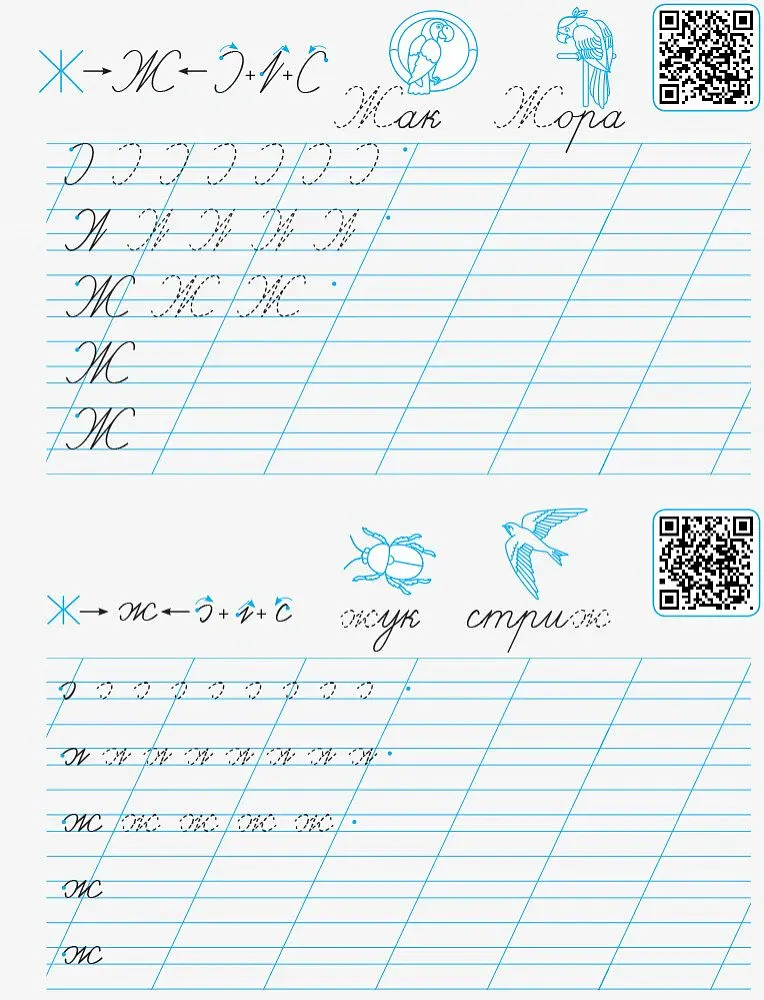 Ж → Ж ← Ɔ + И + С
Жак Жора
Ɔ Ɔ Ɔ Ɔ Ɔ Ɔ Ɔ
Ж Ж Ж
Ж
Ж
жук стриж
Ж → ж ← ɔ + и + с
ɔ ɔ ɔ ɔ ɔ ɔ ɔ ɔ ɔ
ж ж ж ж ж
ж
ж